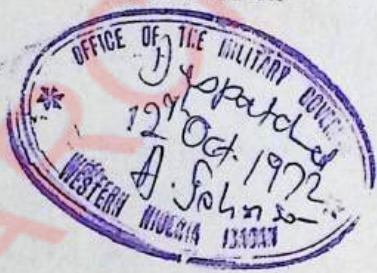 OFFICE OF THE MILITARY GOVER
Despatched
12th Oct. 1972
A. Johnson
WESTERN NIGERIA IBADAN